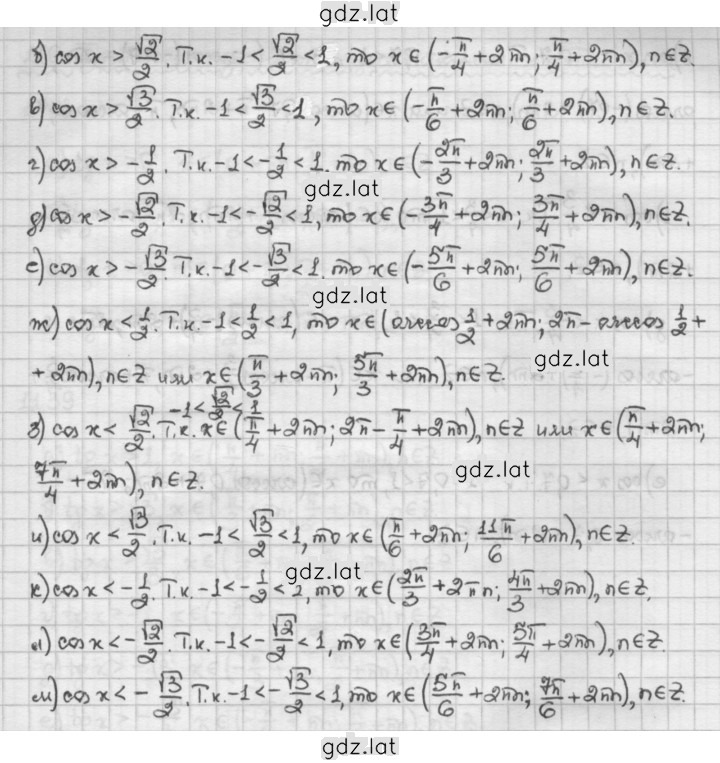 gdz.lat
б) cos x > √2/2. Т.к. -1 < √2/2 < 1, то x ∈ (-π/4 + 2πn; π/4 + 2πn), n ∈ Z.
в) cos x > √3/2. Т.к. -1 < √3/2 < 1, то x ∈ (-π/6 + 2πn; π/6 + 2πn), n ∈ Z.
г) cos x > -1/2. Т.к. -1 < -1/2 < 1. то x ∈ (-2π/3 + 2πn; 2π/3 + 2πn), n ∈ Z.
gdz.lat
д) cos x > -√2/2. Т.к. -1 < -√2/2 < 1, то x ∈ (-3π/4 + 2πn; 3π/4 + 2πn), n ∈ Z.
е) cos x > -√3/2. Т.к. -1 < -√3/2 < 1, то x ∈ (-5π/6 + 2πn; 5π/6 + 2πn), n ∈ Z.
gdz.lat
ж) cos x < 1/2. Т.к. -1 < 1/2 < 1, то x ∈ (arccos 1/2 + 2πn; 2π - arccos 1/2 +
gdz.lat
+ 2πn), n ∈ Z или x ∈ (π/3 + 2πn; 5π/3 + 2πn), n ∈ Z.
-1 < √2/2 < 1
з) cos x < √2/2. Т.к. x ∈ (π/4 + 2πn; 2π - π/4 + 2πn), n ∈ Z или x ∈ (π/4 + 2πn;
gdz.lat
7π/4 + 2πn), n ∈ Z.
и) cos x < √3/2. Т.к. -1 < √3/2 < 1, то x ∈ (π/6 + 2πn; 11π/6 + 2πn), n ∈ Z.
gdz.lat
к) cos x < -1/2. Т.к. -1 < -1/2 < 1, то x ∈ (2π/3 + 2πn; 4π/3 + 2πn), n ∈ Z.
л) cos x < -√2/2. Т.к. -1 < -√2/2 < 1, то x ∈ (3π/4 + 2πn; 5π/4 + 2πn), n ∈ Z.
м) cos x < -√3/2. Т.к. -1 < -√3/2 < 1, то x ∈ (5π/6 + 2πn; 7π/6 + 2πn), n ∈ Z.
gdz.lat